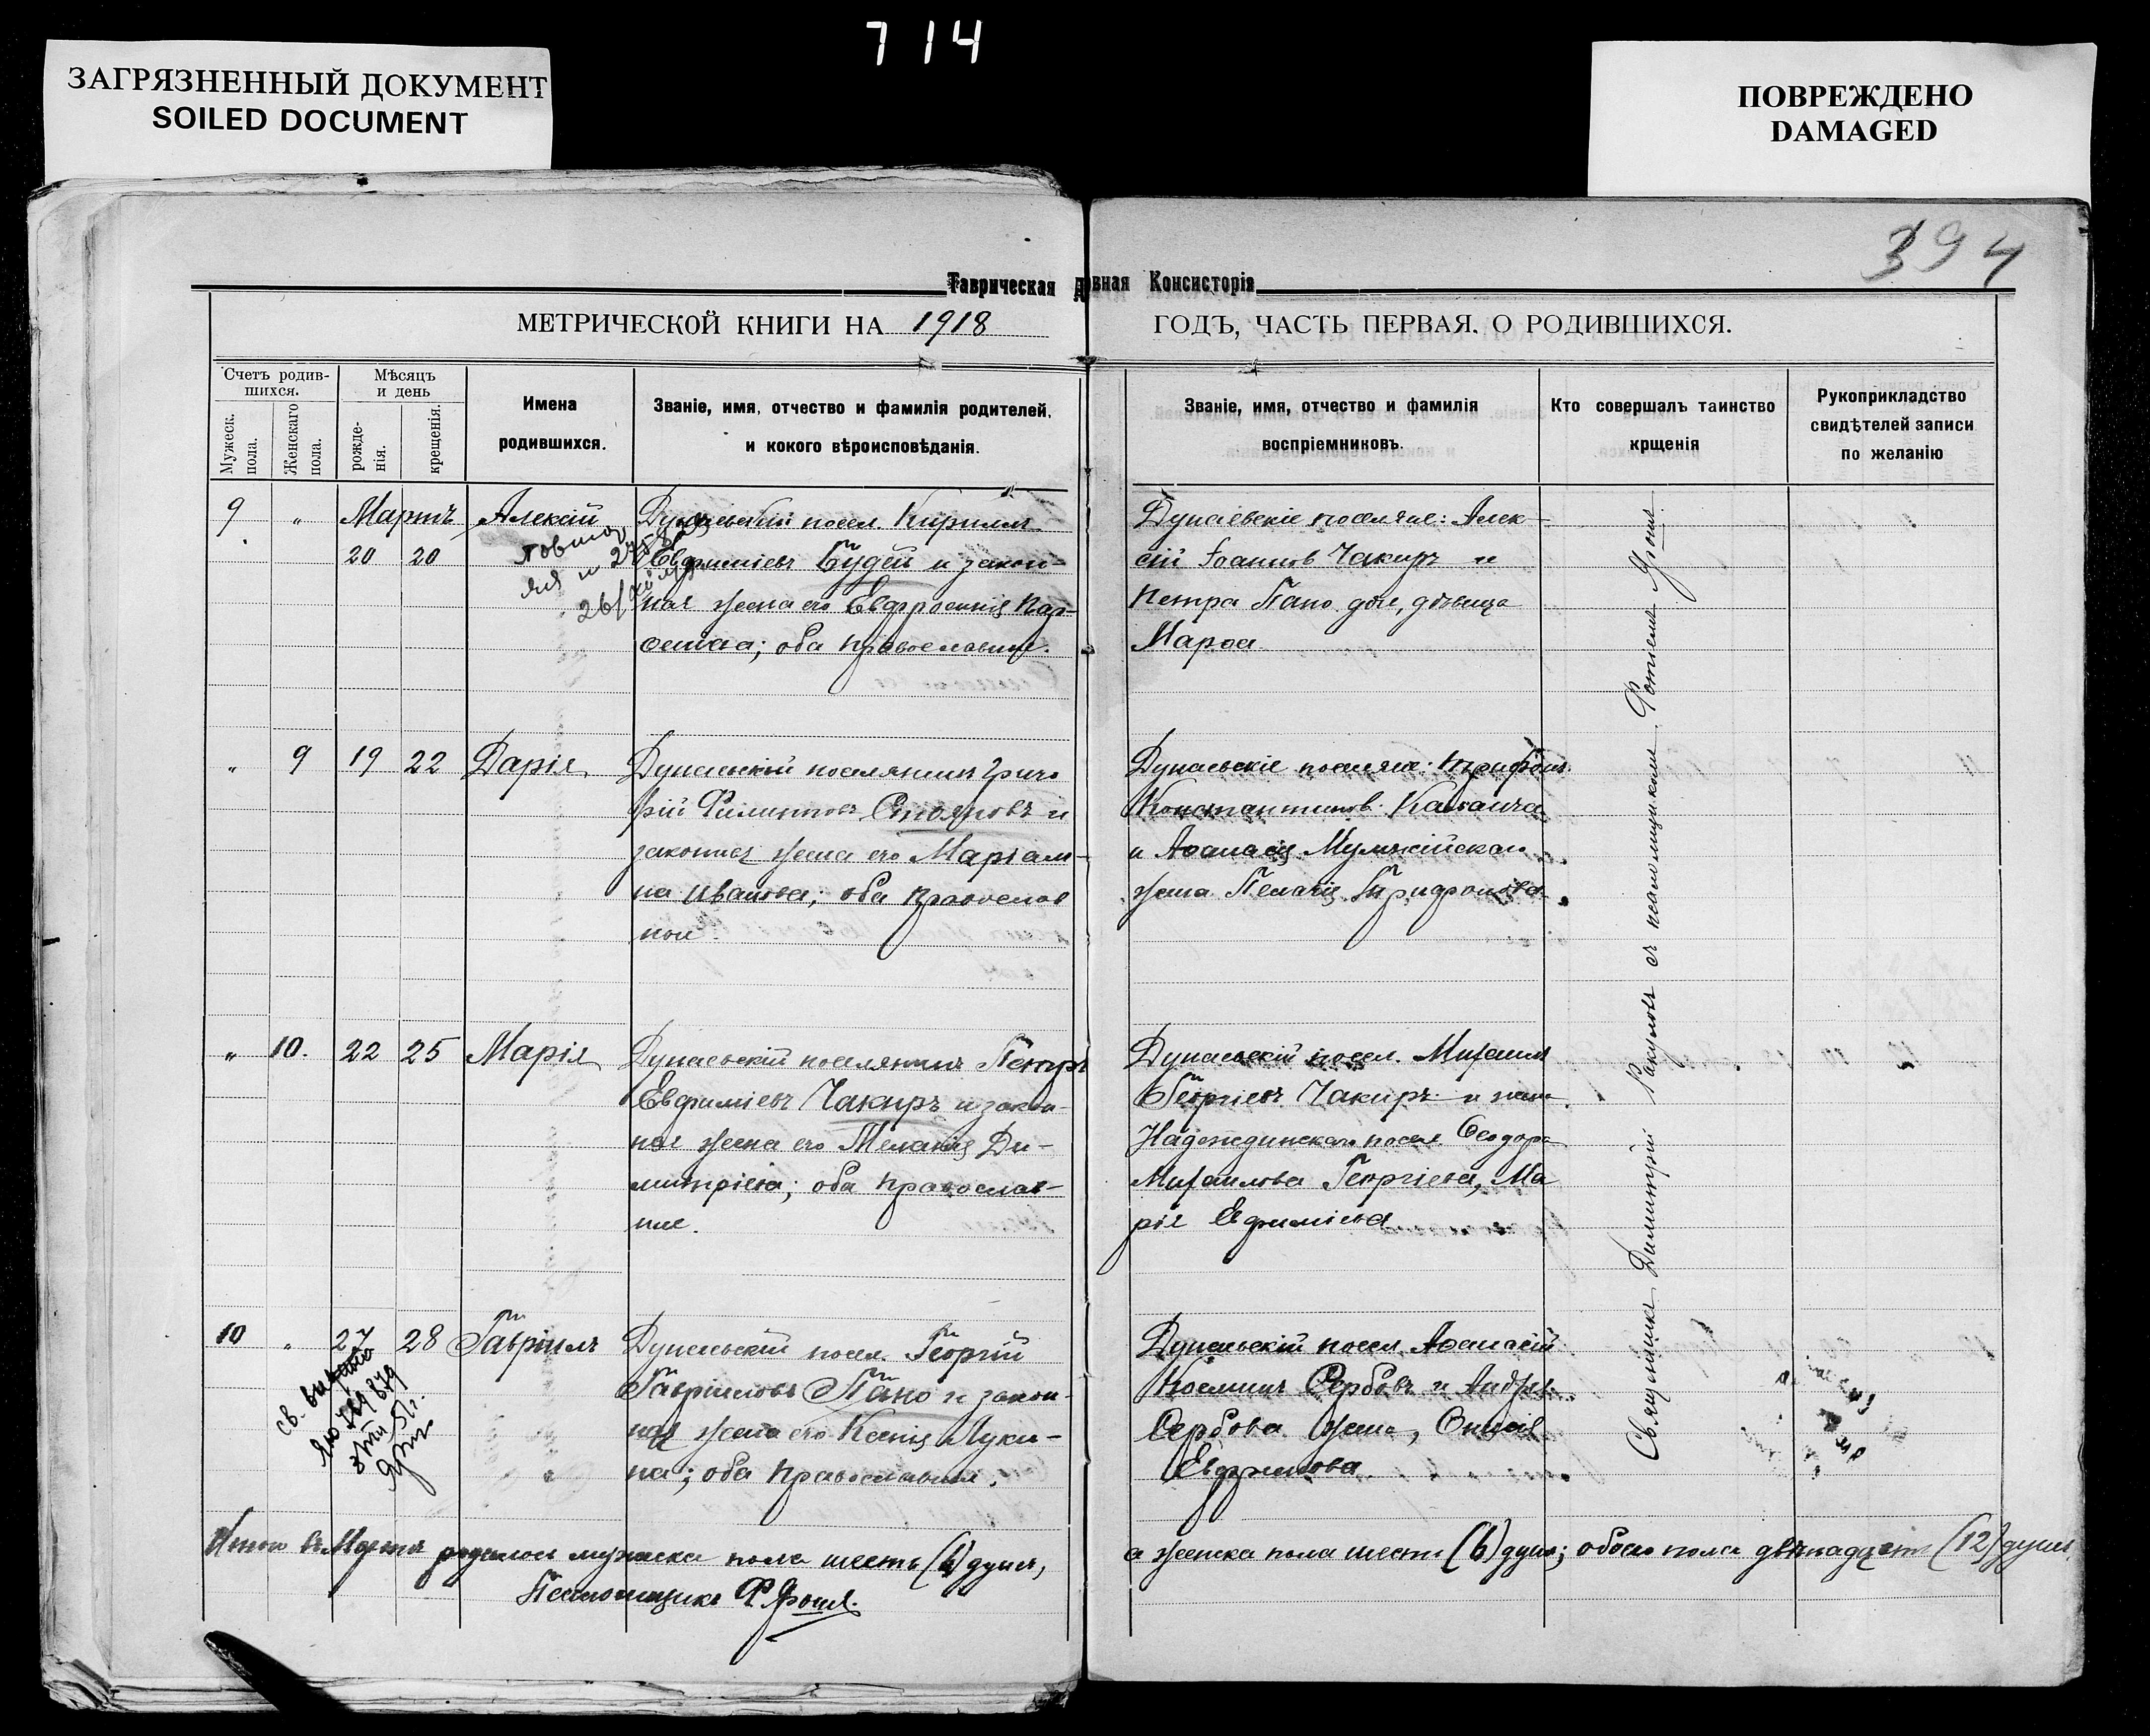 714
ЗАГРЯЗНЕННЫЙ ДОКУМЕНТ
SOILED DOCUMENT
ПОВРЕЖДЕНО
DAMAGED
394
Таврическая д вная Консисторія
МЕТРИЧЕСКОЙ КНИГИ НА 1918
ГОДЪ, ЧАСТЬ ПЕРВАЯ. О РОДИВШИХСЯ.
Счетъ родив-
шихся.
Мужеск.
пола.
Женскаго
пола.
Мѣсяцъ
и день
рожде-
нія.
крещенія.
Имена
родившихся.
Званіе, имя, отчество и фамилія родителей,
и кокого вѣроисповѣданія.
Званіе, имя, отчество и фамилія
воспріемниковъ.
Кто совершалъ таинство
крщенія
Рукоприкладство
свидѣтелей записи
по желанію
9 " Мартъ Алексій Дунаевскій посел. Кириллъ
20 20 Евфиміевъ Будей и закон-
ная жена его Евфросинія Пар-
ѳениева; оба православные.
Дунаевскіе поселяне: Алек-
сій Іоаннов Чакиръ и
Петра Пано доч, дѣвица
Марѳа
" 9 19 22 Дарія Дунаевскій поселянинъ
Филипповъ Стояновъ и
законная жена его Маріам-
на Иванова; оба православ
ные.
Дунаевскіе поселяне: Трифонъ
Константинов.
и Аѳанасія
жена Пелагія Трифонова
" 10. 22 25 Марія Дунаевскій поселянинъ Петръ
Евфиміевъ Чакиръ и закон-
ная жена его Меланія Ди-
митріева; оба православ-
ные.
Дунаевскій посел. Михаилъ
Георгіевъ Чакиръ и жена
Надеждинскаго посел. Ѳеодора
Михаилова Георгіева, Ма
рія Евфиміева
10 " 27 28 Гавріилъ Дунаевскій посел. Георгій
Гавріиловъ Пано и закон-
ная жена его Ксенія Луки-
на; оба православные.
Дунаевскій посел. Аѳанасій
Косминъ Сербовъ и Андрея
Сербова жена,
Евфимова
св. выдано
Священникъ Димитрій Ракуловъ съ псаломщикомъ Фотіемъ
Итого въ Мартѣ родилось мужска пола шесть (6) душъ,
а женска пола шесть (6) душъ; обоего пола двѣнадцать (12) душъ.
Псаломщикъ Ф.